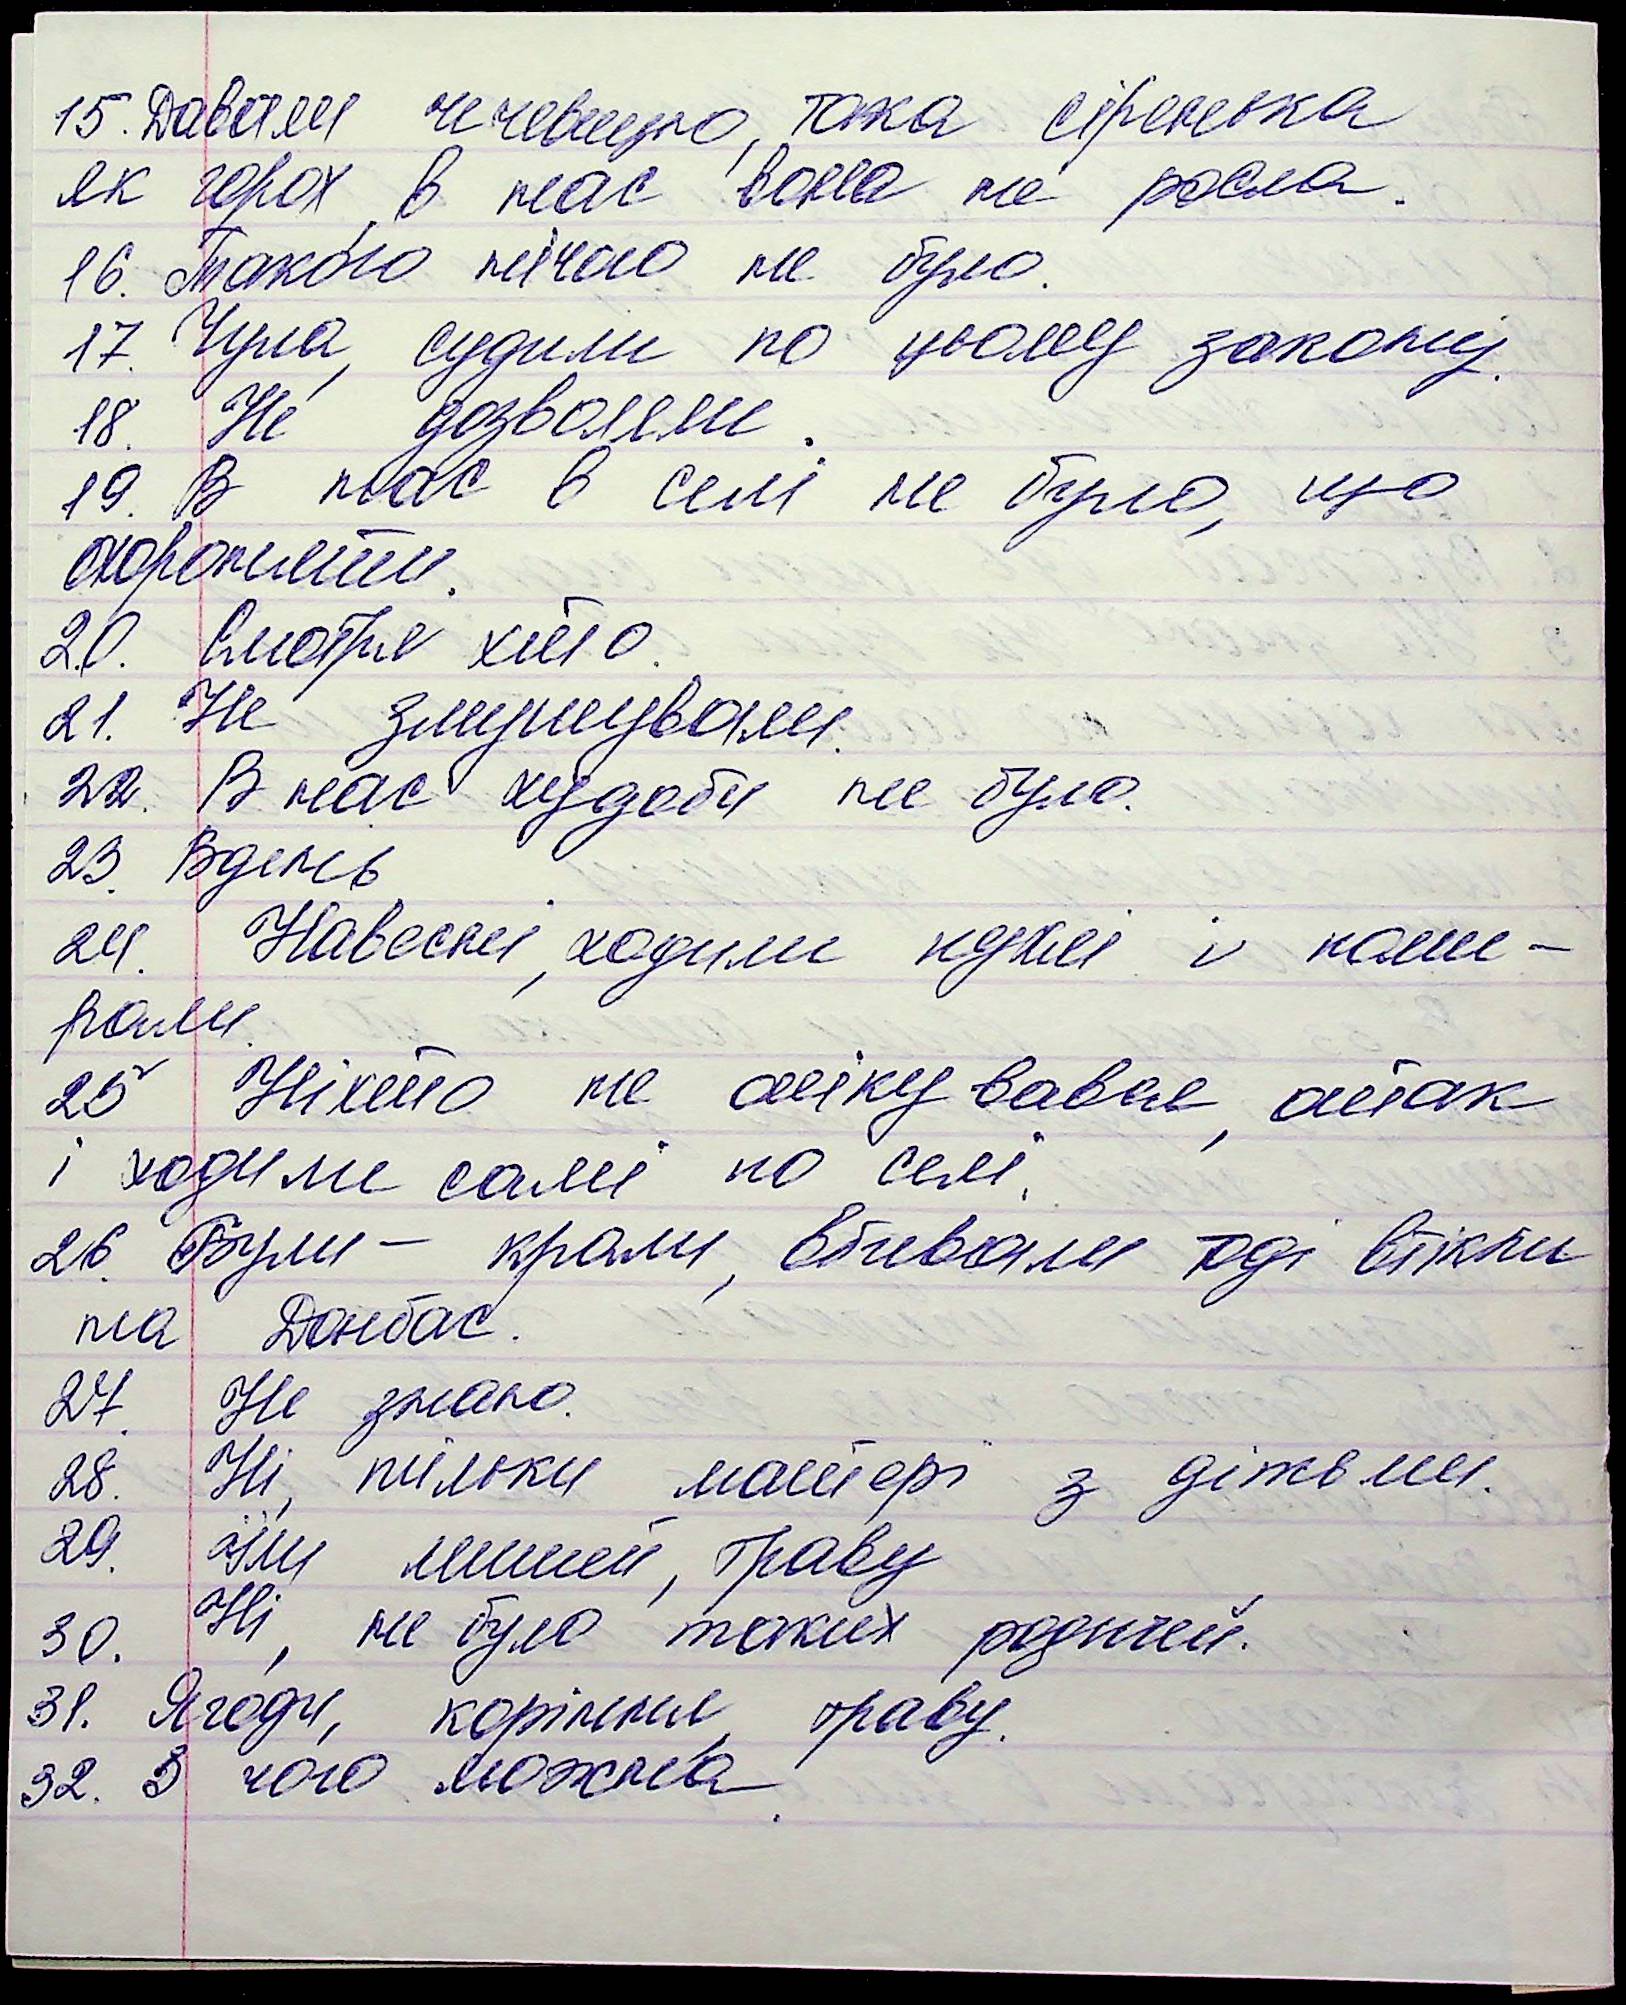 15. Давали чичевицю, така сіренька
як горох, в нас вона не росла.
16. Такого нічого не було.
17. Чула, судили по цьому закону.
18. Не дозволяли.
19. В нас в селі не було, що
охороняти.
20. Смотря хто.
21. Не змушували.
22. В нас худоби не було.
23. Вдень
24. Навесні, ходили пухлі і
рали.
25 Ніхто не опікувався, отак
і ходили самі по селі.
26. Були – крали, вбивали тоді втікли
на Донбас.
27. Не знаю.
28. Ні, тільки матері з дітьми.
29. Їли мишей, траву
30. Ні, не було таких родичей.
31. Ягоди, коріння, траву.
32. З чого можна.